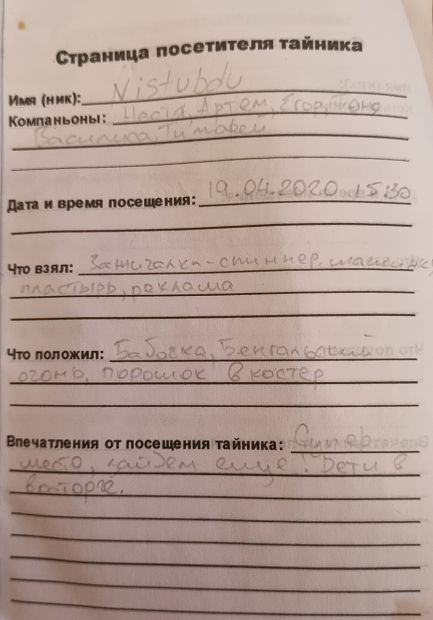 Страница посетителя тайника
Имя (ник): Nistubdu
Компаньоны: Настя, Артём, Егор,
Василиса, Тимофей
Дата и время посещения: 19.04.2020 15:30
Что взял: Зажигалка-спиннер,
пластырь, реклама
Что положил: Бабочка, Бенгальский
огонь, порошок в костёр
Впечатления от посещения тайника: Супер
место, найдём еще! Дети в
восторге.